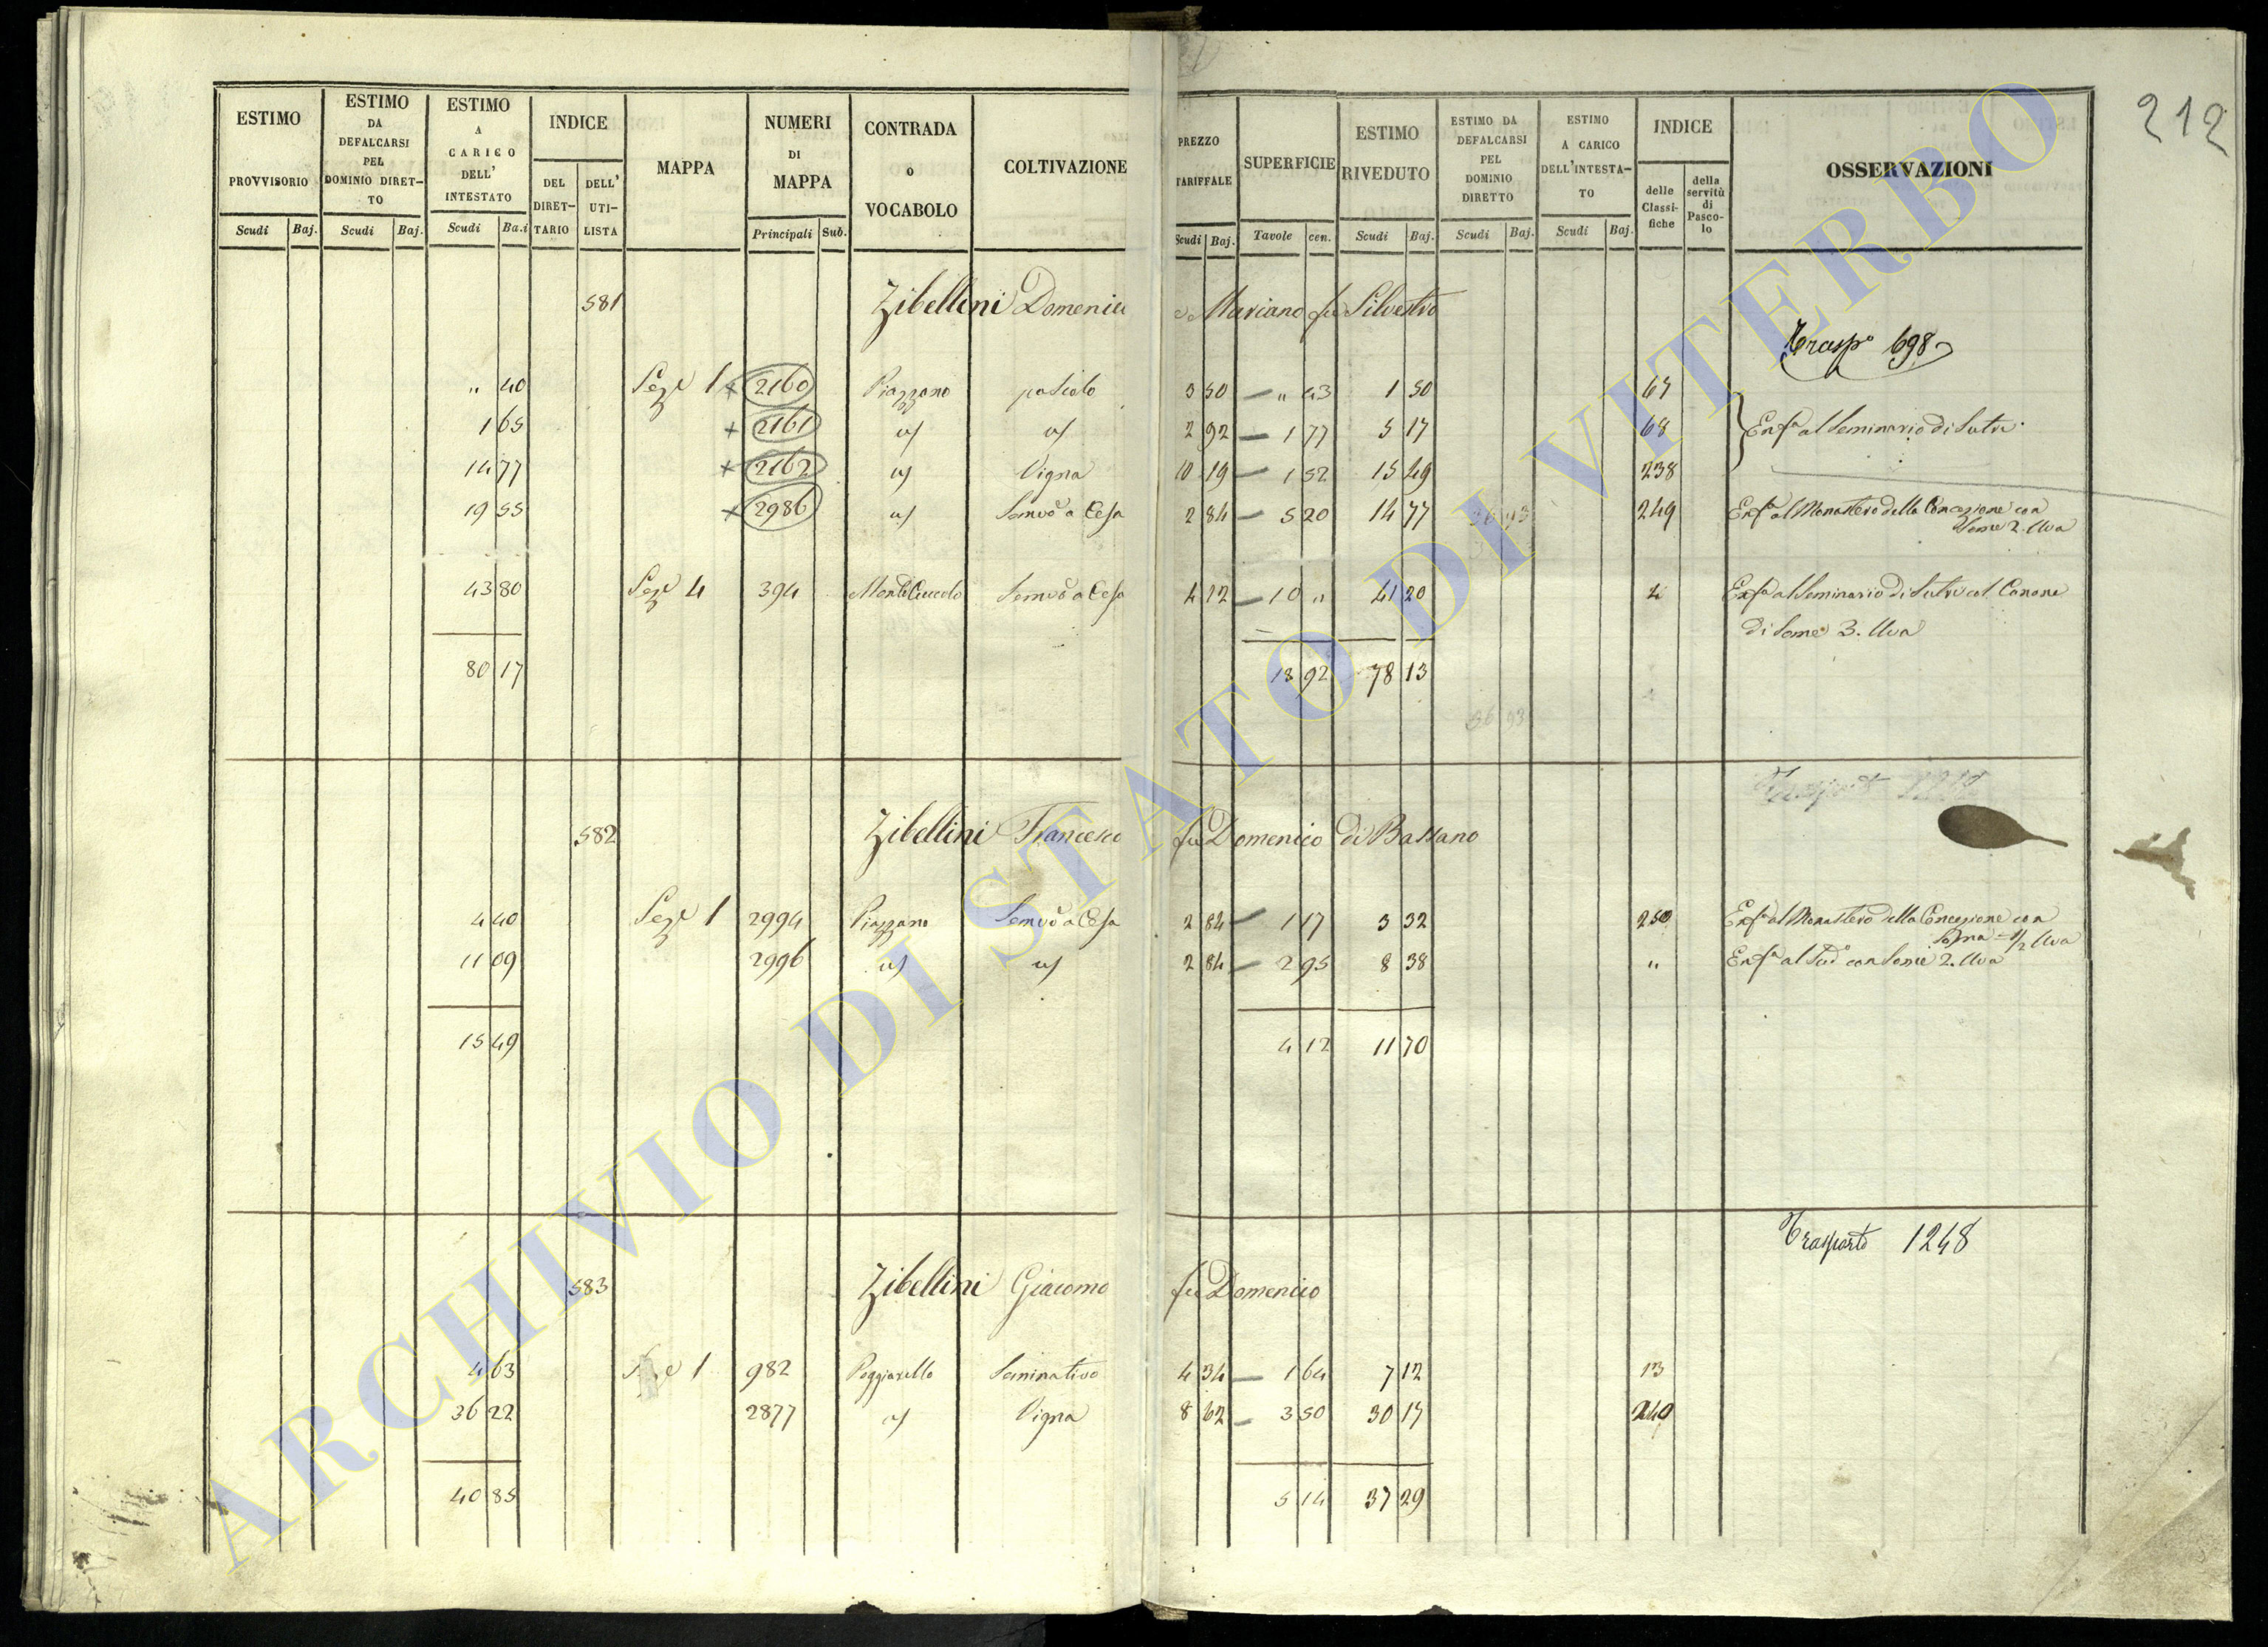 212
ESTIMO PROVVISORIO Scudi Baj. | ESTIMO DA DEFALCARSI PEL DOMINIO DIRET-TO Scudi Baj. | ESTIMO A CARICO DELL' INTESTATO Scudi Ba.i | INDICE DEL DIRET-TARIO DELL' UTI-LISTA | MAPPA | NUMERI DI MAPPA Principali Sub. | CONTRADA o VOCABOLO | COLTIVAZIONE | PREZZO TARIFFALE Scudi Baj. | SUPERFICIE Tavole cen. | ESTIMO RIVEDUTO Scudi Baj. | ESTIMO DA DEFALCARSI PEL DOMINIO DIRETTO Scudi Baj. | ESTIMO A CARICO DELL'INTESTA-TO Scudi Baj. | INDICE delle Classi-fiche della servitù di Pasco-lo | OSSERVAZIONI
581 Zibellini Domenico e Mariano fu Silvestro
Trasp° 698
" 40 Sez e 1 + 2160 Piazzano pascolo 3 50 — " 43 1 50 67
1 65 + 2161 a/ a/ 2 92 — 1 77 5 17 68 Enf.a al Seminario di Sutri
14 77 + 2162 a/ Vigna 10 19 — 1 52 15 49 238
19 55 + 2986 a/ Semvo a Cesa 2 84 — 5 20 14 77 36 93 249 Enf.a al Monastero della Concezione con
Some 2. Uva
43 80 Sez e 4 394 Semvo a Cesa 4 12 — 10 " 41 20 Enf.a al Seminario di Sutri col Canone
di Some 3. Uva
80 17 18 92 78 13
36 93
582 Zibellini Francesco fu Domenico di Bassano
4 40 Sez e 1 2994 Piazzano Semvo a Cesa 2 84 — 1 17 3 32 250 Enf.a al Monastero della Concezione con
Soma 1/2 Uva
11 09 2996 a/ a/ 2 84 — 2 95 8 38 " Enf.a al Sud° con Some 2. Uva
15 49 4 12 11 70
Trasporto 1248
583 Zibellini Giacomo fu Domenico
4 63 1 982 Poggiarello Seminativo 4 34 — 1 64 7 12 13
36 22 2877 a/ Vigna 8 62 — 3 50 30 17 240
40 85 5 14 37 29
ARCHIVIO DI STATO DI VITERBO